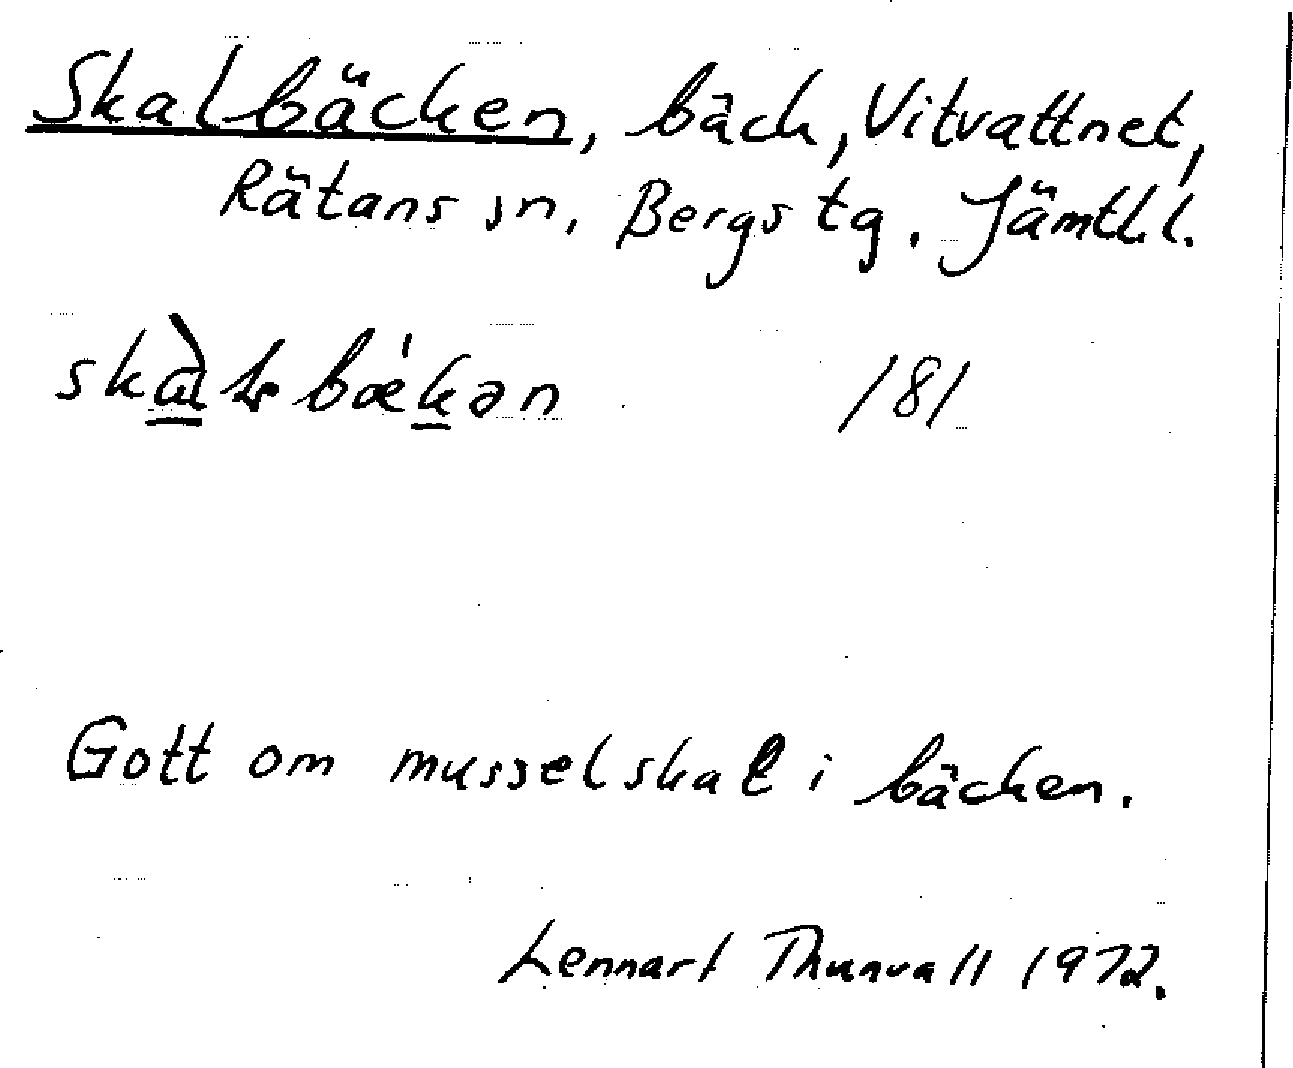 Skalbäcken, bäck, Vitvattnet,
Rätans sn, Bergs tg. Jämtl.l.
181
Gott om musselskal i bäcken.
Lennart Thunvall 1972.